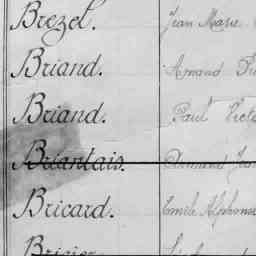 Brezel. Jean Marie
Briand. Armand
Briand. Paul Victo
Briantais. Armand Jean
Bricard. Emile Alphonse
Bricier